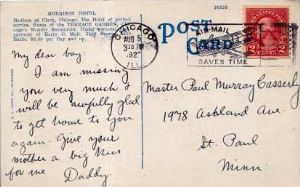 MORRISON HOTEL
Madison at Clark, Chicago. The Hotel of perfect
service. Home of the TERRACE GARDEN,
POST
CARD
CHICAGO
AUG 5
3 PM
192
ILL
AIR MAIL
SAVES TIME
2
2
My dear boy:
I am missing
you very much &
will be awfully glad
to get home to you
again. Give your
mother a big kiss
for me
Daddy
Master Paul Murray Casserly
1978 Ashland Ave
St. Paul
Minn